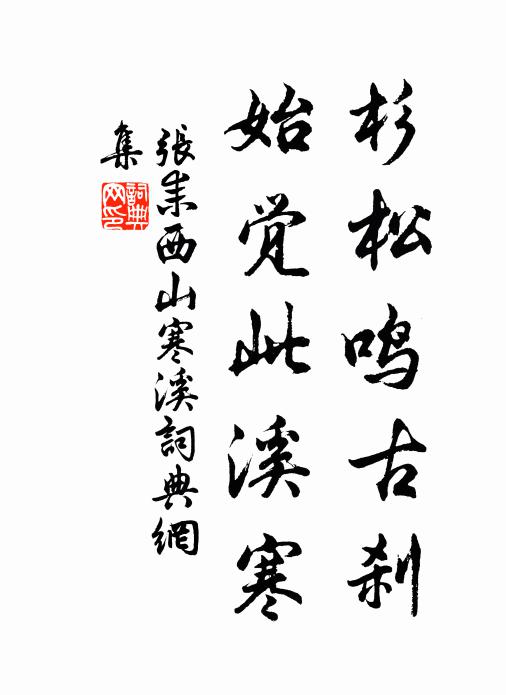 杉松鸣古刹
始觉此溪寒
張耒西山寒溪詞典網
集
詞典网印